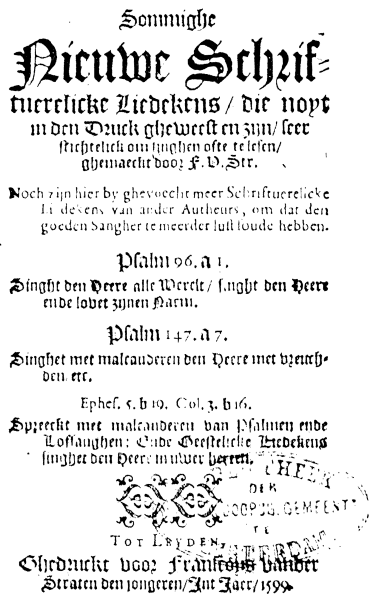 Sommighe
Nieuwe Schrif-
tuerelicke Liedekens/ die noyt
in den Druck gheweest en zijn/ seer
stichtelick om singhen ofte te lesen/
ghemaeckt door F. V. Str.
Noch zijn hier by ghevoecht meer Schriftuerelicke
Li dekens van ander Autheurs, om dat den
goeden Sangher te meerder lust soude hebben.
Psalm 96. a 1.
Singht den Heere alle Werelt/ singht den Heere
ende lovet zijnen Naem.
Psalm 147. a 7.
Singhet met malcanderen den Heere met vreuch-
den. etc.
Ephes. 5. b 19. Col. 3. b 16.
Spreeckt met malcanderen van Psalmen ende
Loffsanghen: Ende Geestelicke Liedekens
singhet den Heere in uwer herten.
THEEK
DER
DOOPSG. GEMEENT
TE
TOT LEYDEN,
Ghedruckt voor Fransoys vander
Straten den jongeren/ Int Jaer/ 1599.